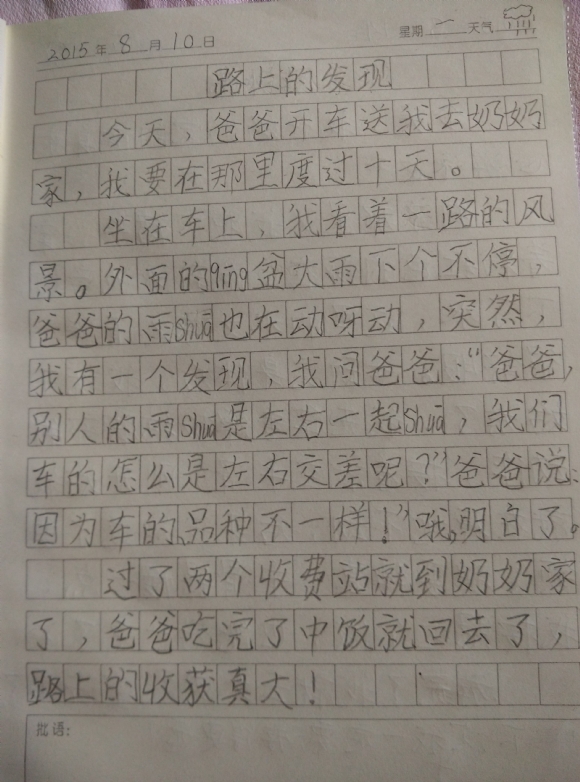 2015年8月10日 星期一 天气
路上的发现
今天，爸爸开车送我去奶奶
家，我要在那里度过十天。
坐在车上，我看着一路的风
景。外面的qīng盆大雨下个不停，
爸爸的雨shuā也在动呀动，突然，
我有一个发现，我问爸爸：“爸爸，
别人的雨shuā是左右一起shuā，我们
车的怎么是左右交差呢？”爸爸说：
因为车的品种不一样！”哦，明白了。
过了两个收费站就到奶奶家
了，爸爸吃完了中饭就回去了，
路上的收获真大！
批语：